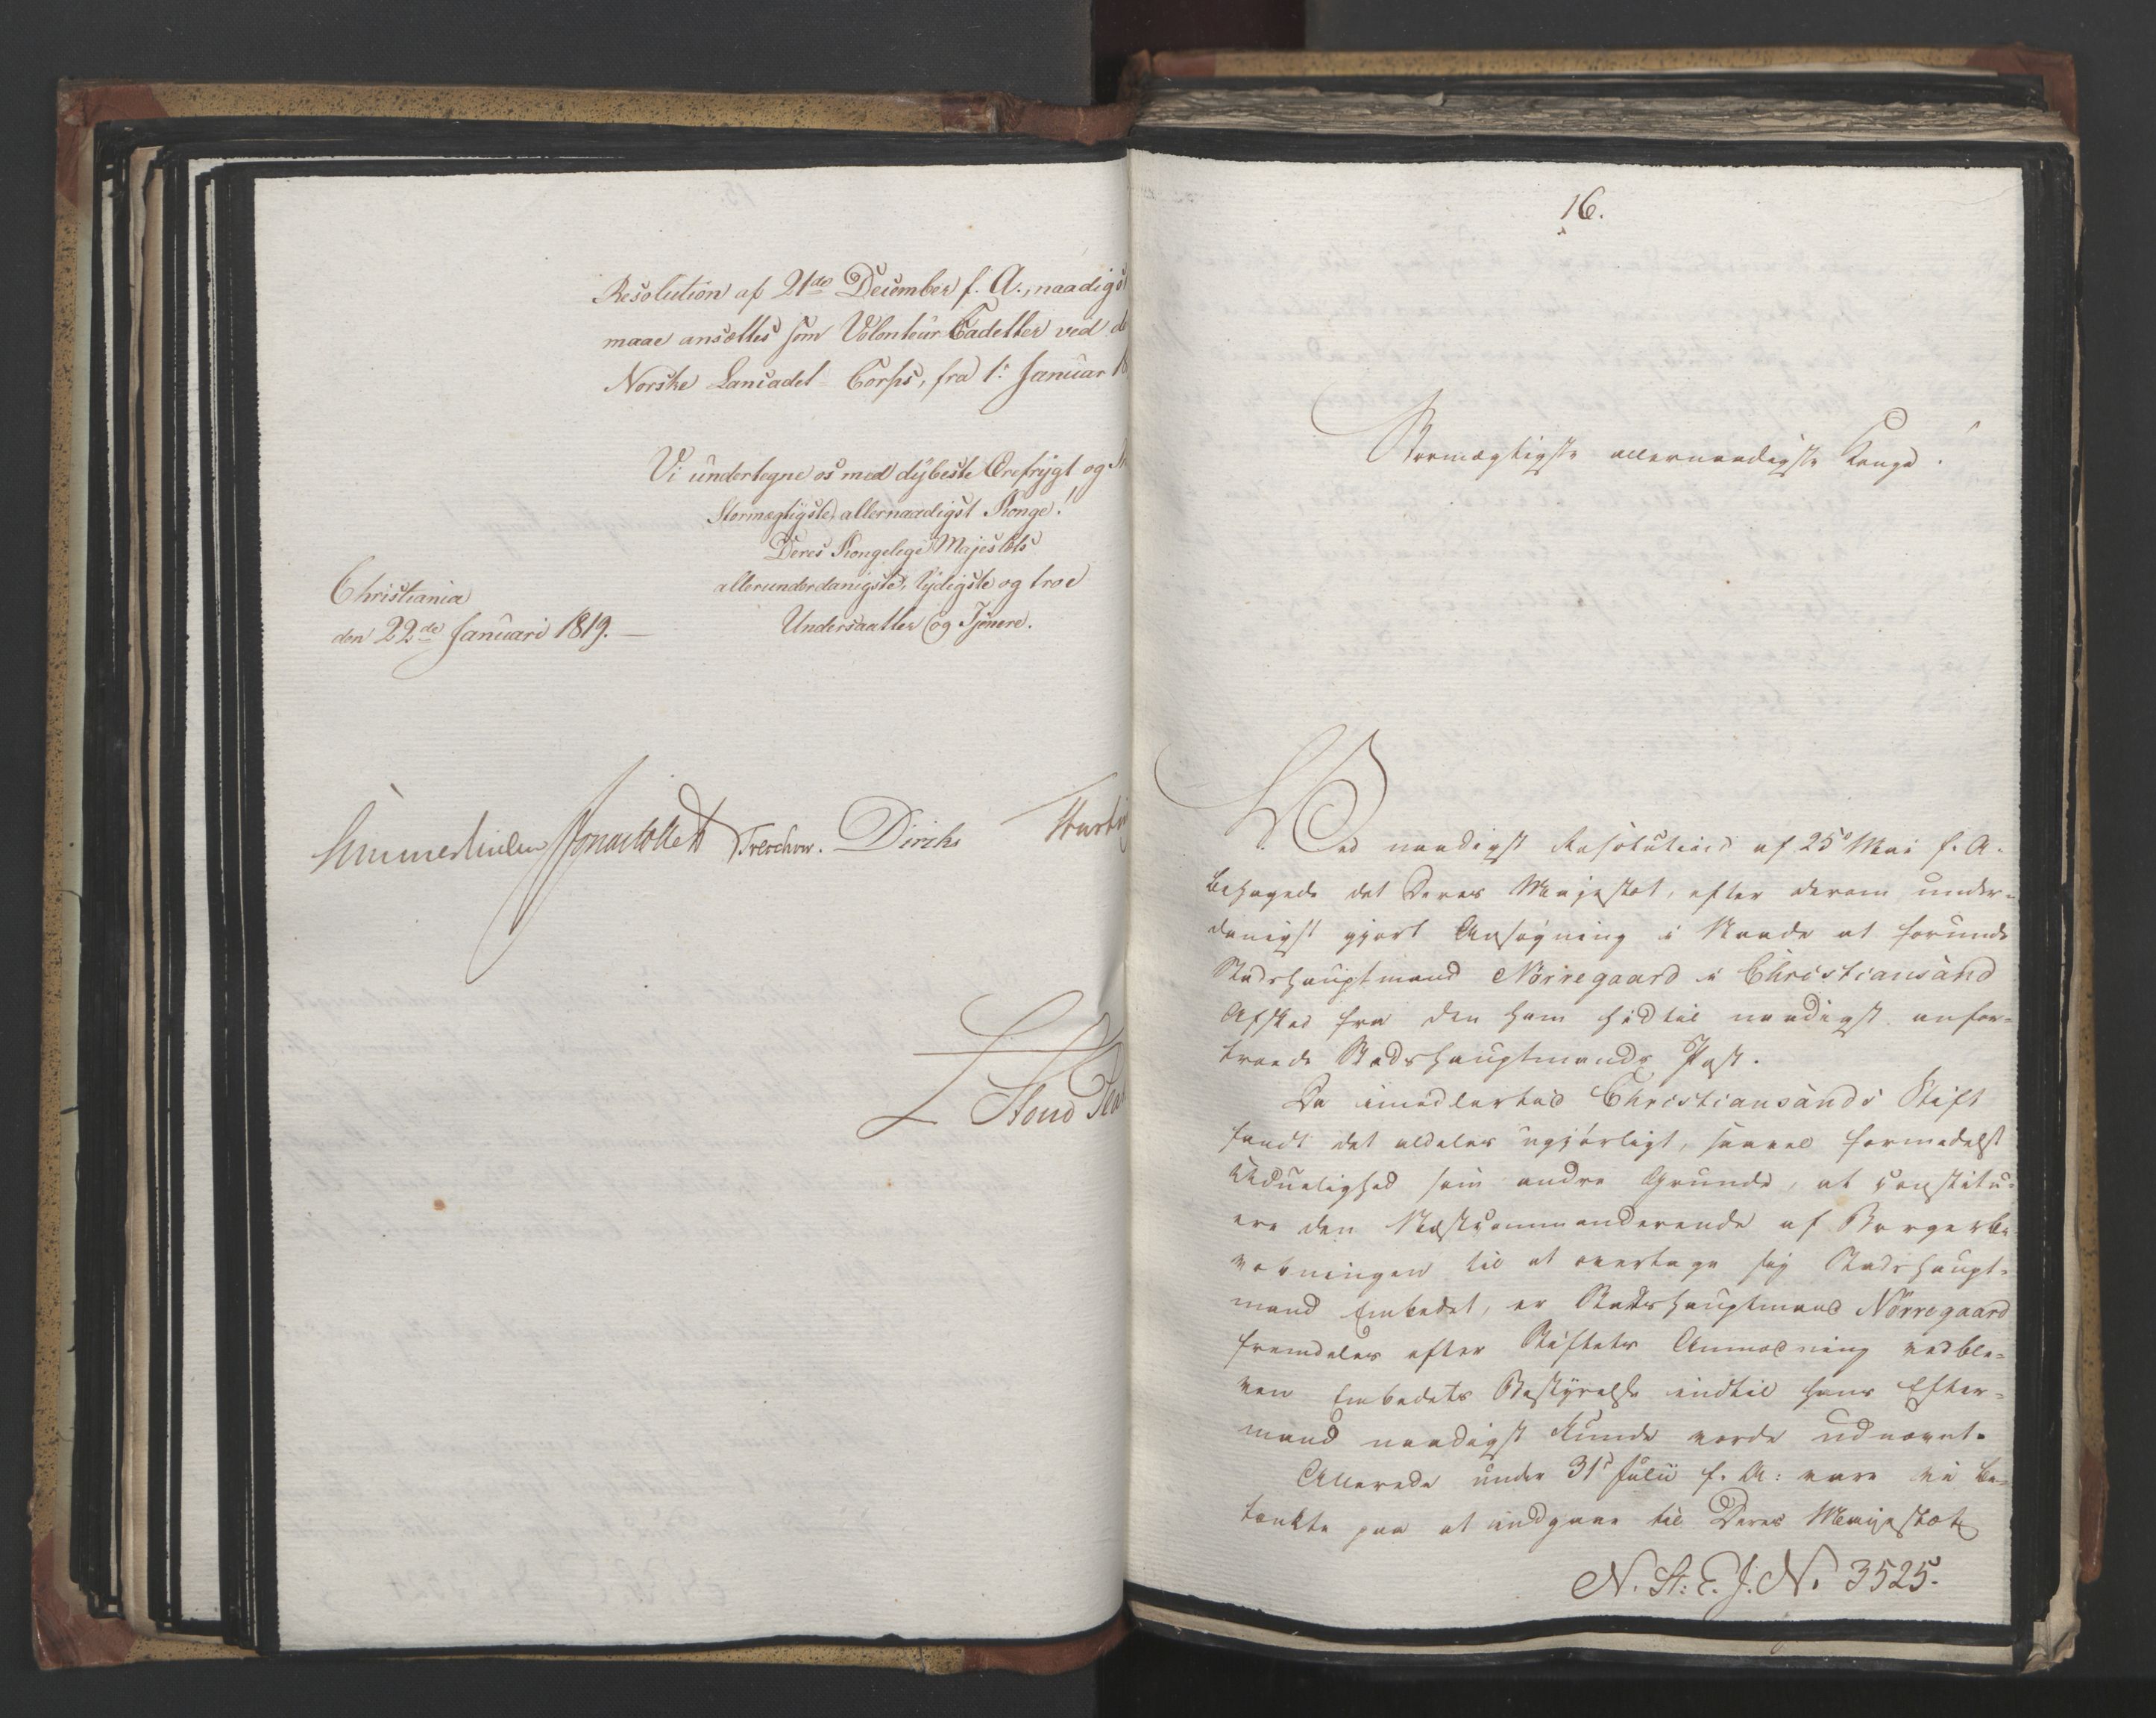 Resolution af 21de December f. A., naadigst
maae ansættes som Volonteur Cadetter ved de
Norske Landcadet Corps, fra 1: Januar 18
Vi undertegne os med dybeste Ærefrygt og
Stormægtigste, allernaadigst Konge!
Deres Kongelige Majestæts
allerunderdanigste, lydigste og troe
Christiania
den 22de Januari 1819. —
Undersaatter og Tjenere.
Sommerhielm Jonas Collett Treschow. Diriks
16.
Stormægtigste allernaadigste Konge!
Ved naadigst Resolution af 25de Mai f. A.
behagede det Deres Majestæt, efter derom under-
danigst gjort Ansøgning i Naade at forunde
Stadshauptmand Nørregaard i Christiansand
Afsked fra den ham hidtil naadigst anfor-
troede Stadshauptmands Post.
Da imidlertid Christiansands Stift
fandt det aldeles ugjørligt, saavel formedelst
Uduelighed som andre Grunde, at constitu-
ere den Næstcommanderende af Borgerbe-
væbningen til at overtage sig Stadshaupt-
mand Embedet, er Stadshauptmand Nørregaard
fremdeles efter Stiftets Anmodning vedble-
ven Embedets Bestyrelse indtil hans Efter-
mand naadigst kunde vorde udnævnt.
Allerede under 31te Julii f. A: vare vi be-
tænkte paa at indgaae til Deres Majestæt
N. St: E. J. No 3525.